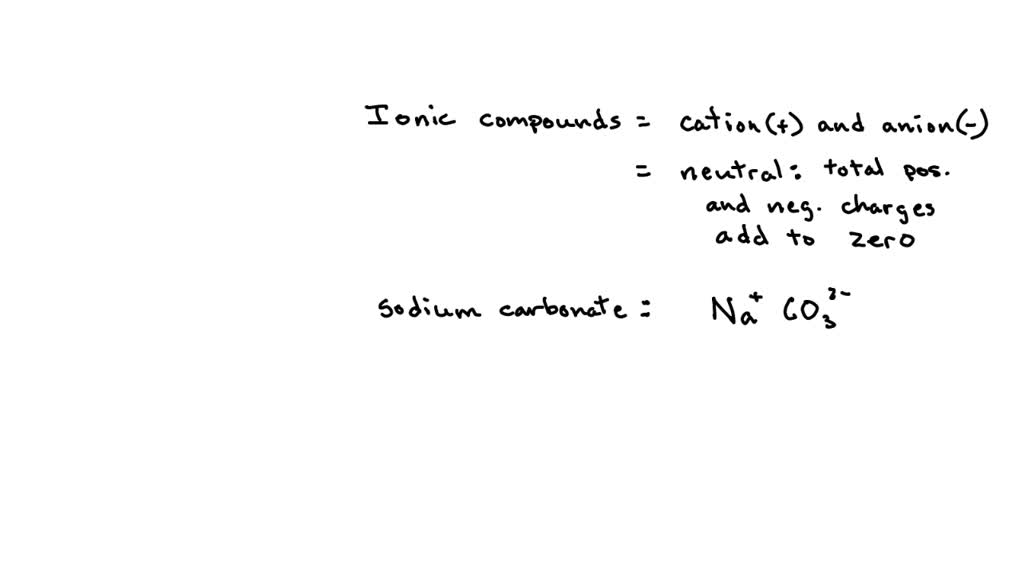 Ionic compounds = cation(+) and anion(-)
= neutral: total pos.
and neg. charges
add to zero
sodium carbonate: Na⁺ CO₃²⁻